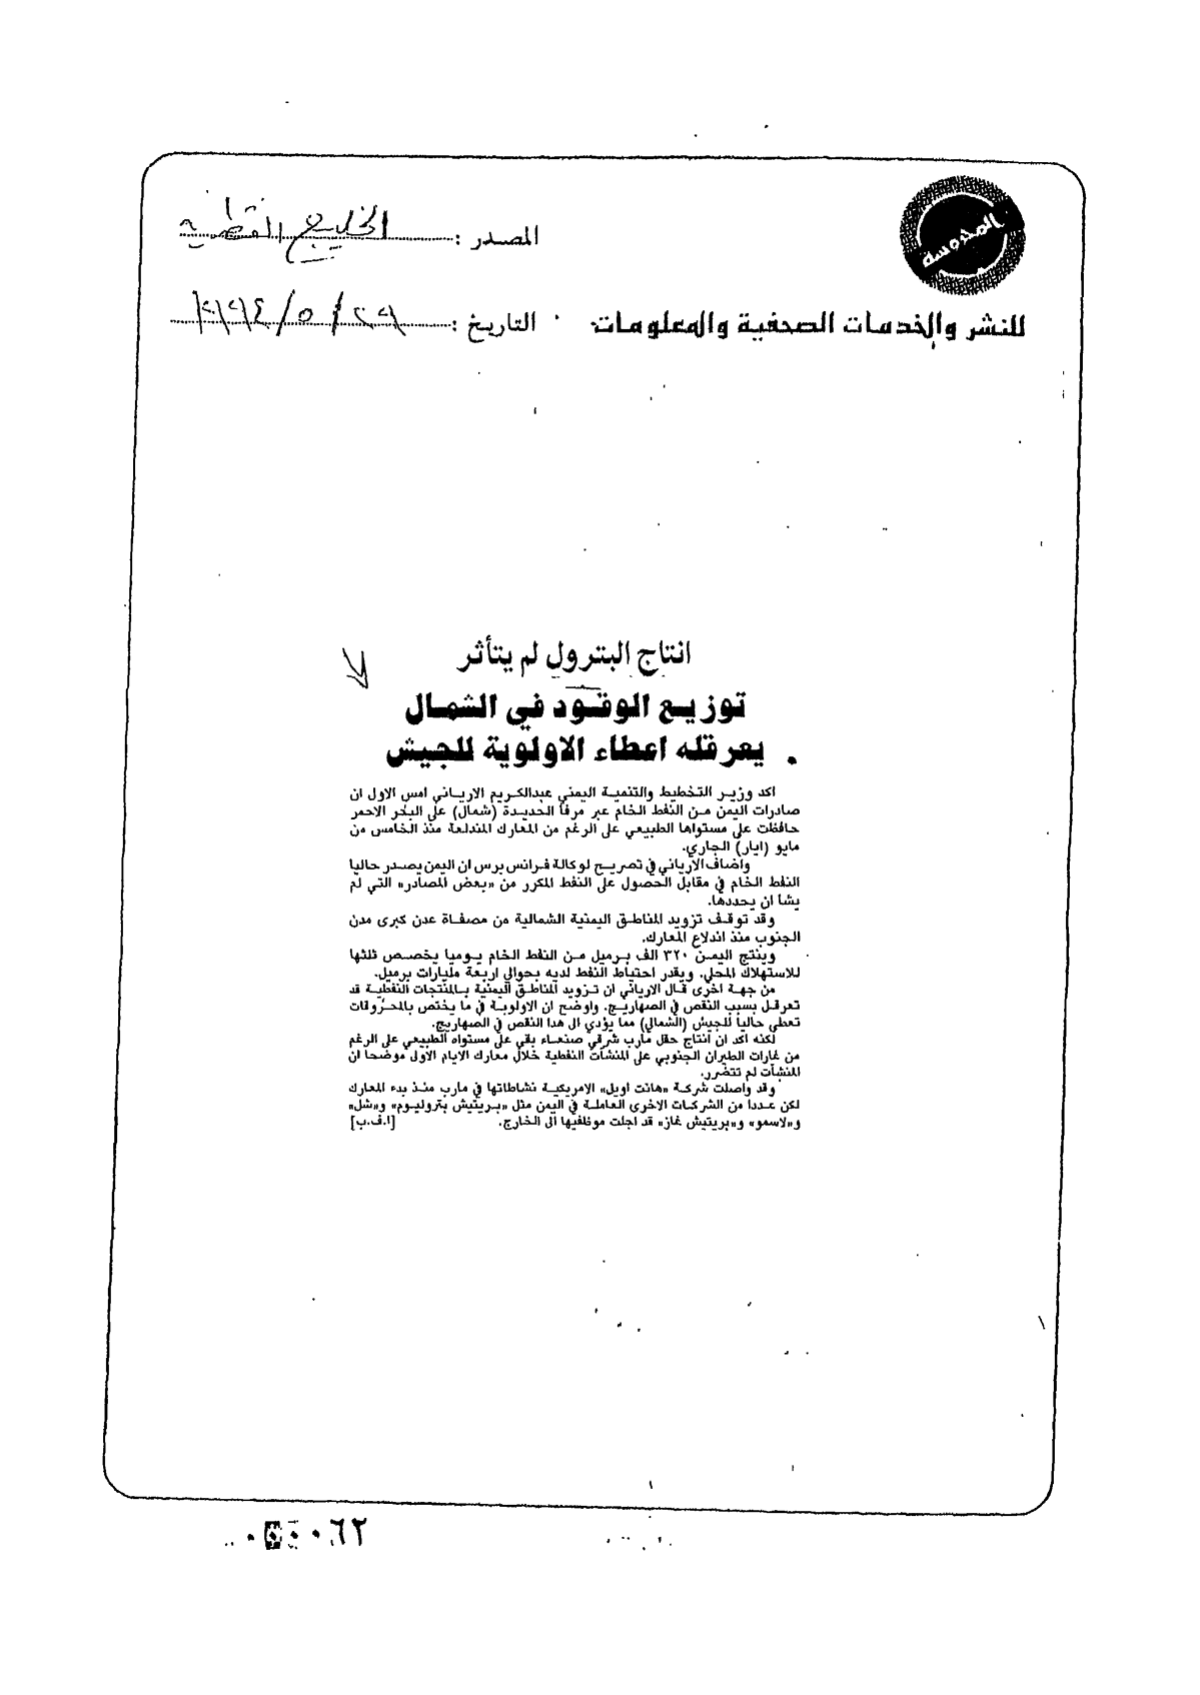 المصدر : الخليج القطرية
المحروسة
للنشر والخدمات الصحفية والمعلومات
التاريخ : ٢٩ / ٥ / ١٩٩٤
انتاج البترول لم يتأثر
توزيع الوقود في الشمال
يعرقله اعطاء الاولوية للجيش
اكد وزير التخطيط والتنمية اليمني عبدالكريم الارياني امس الاول ان
صادرات اليمن من النفط الخام عبر مرفأ الحديدة (شمال) على البحر الاحمر
حافظت على مستواها الطبيعي على الرغم من المعارك المندلعة منذ الخامس من
مايو (ايار) الجاري.
واضاف الارياني في تصريح لوكالة فرانس برس ان اليمن يصدر حاليا
النفط الخام في مقابل الحصول على النفط المكرر من «بعض المصادر» التي لم
يشا ان يحددها.
وقد توقف تزويد المناطق اليمنية الشمالية من مصفاة عدن كبرى مدن
الجنوب منذ اندلاع المعارك.
وينتج اليمن ٣٢٠ الف برميل من النفط الخام يوميا يخصص ثلثها
للاستهلاك المحلي. ويقدر احتياط النفط لديه بحوالي اربعة مليارات برميل.
من جهة اخرى قال الارياني ان تزويد المناطق اليمنية بالمنتجات النفطية قد
تعرقل بسبب النقص في الصهاريج. واوضح ان الاولوية في ما يختص بالمحروقات
تعطى حاليا للجيش (الشمالي) مما يؤدي الى هذا النقص في الصهاريج.
لكنه اكد ان انتاج حقل مارب شرقي صنعاء بقي على مستواه الطبيعي على الرغم
من غارات الطيران الجنوبي على المنشآت النفطية خلال معارك الايام الاولى موضحا ان
المنشآت لم تتضرر.
وقد واصلت شركة «هانت اويل» الامريكية نشاطاتها في مارب منذ بدء المعارك
لكن عددا من الشركات الاخرى العاملة في اليمن مثل «بريتيش بتروليوم» و«شل»
و«لاسمو» و«بريتيش غاز» قد اجلت موظفيها الى الخارج. [ا.ف.ب]